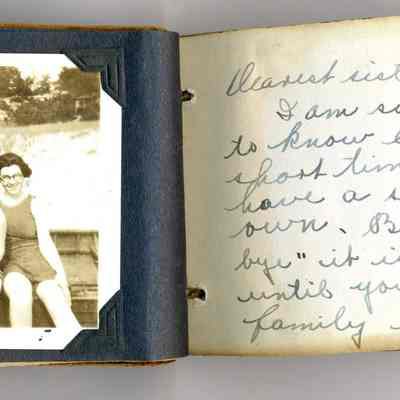 Dearest sist
I am so
to know
short tim
have a s
own. B
bye" it i
until you
family